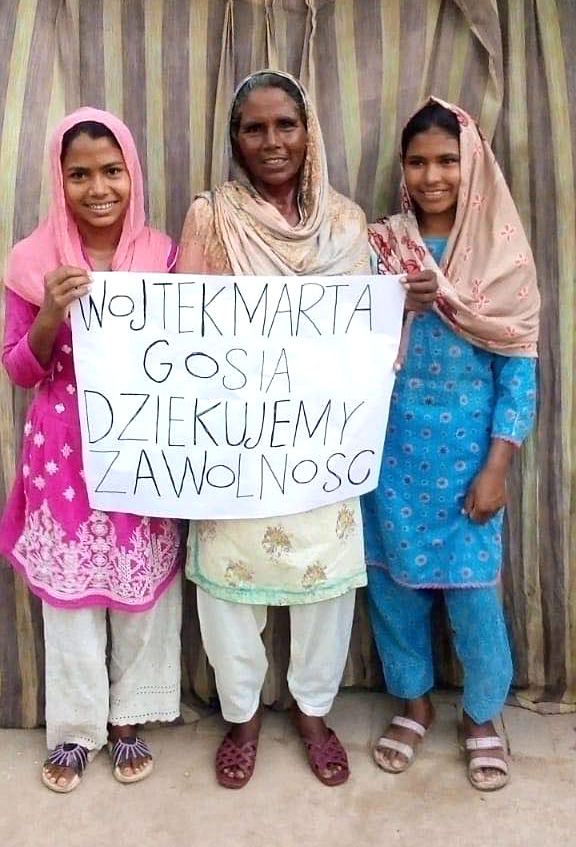 WOJTEK MARTA
GOSIA
DZIEKUJEMY
ZA WOLNOSC